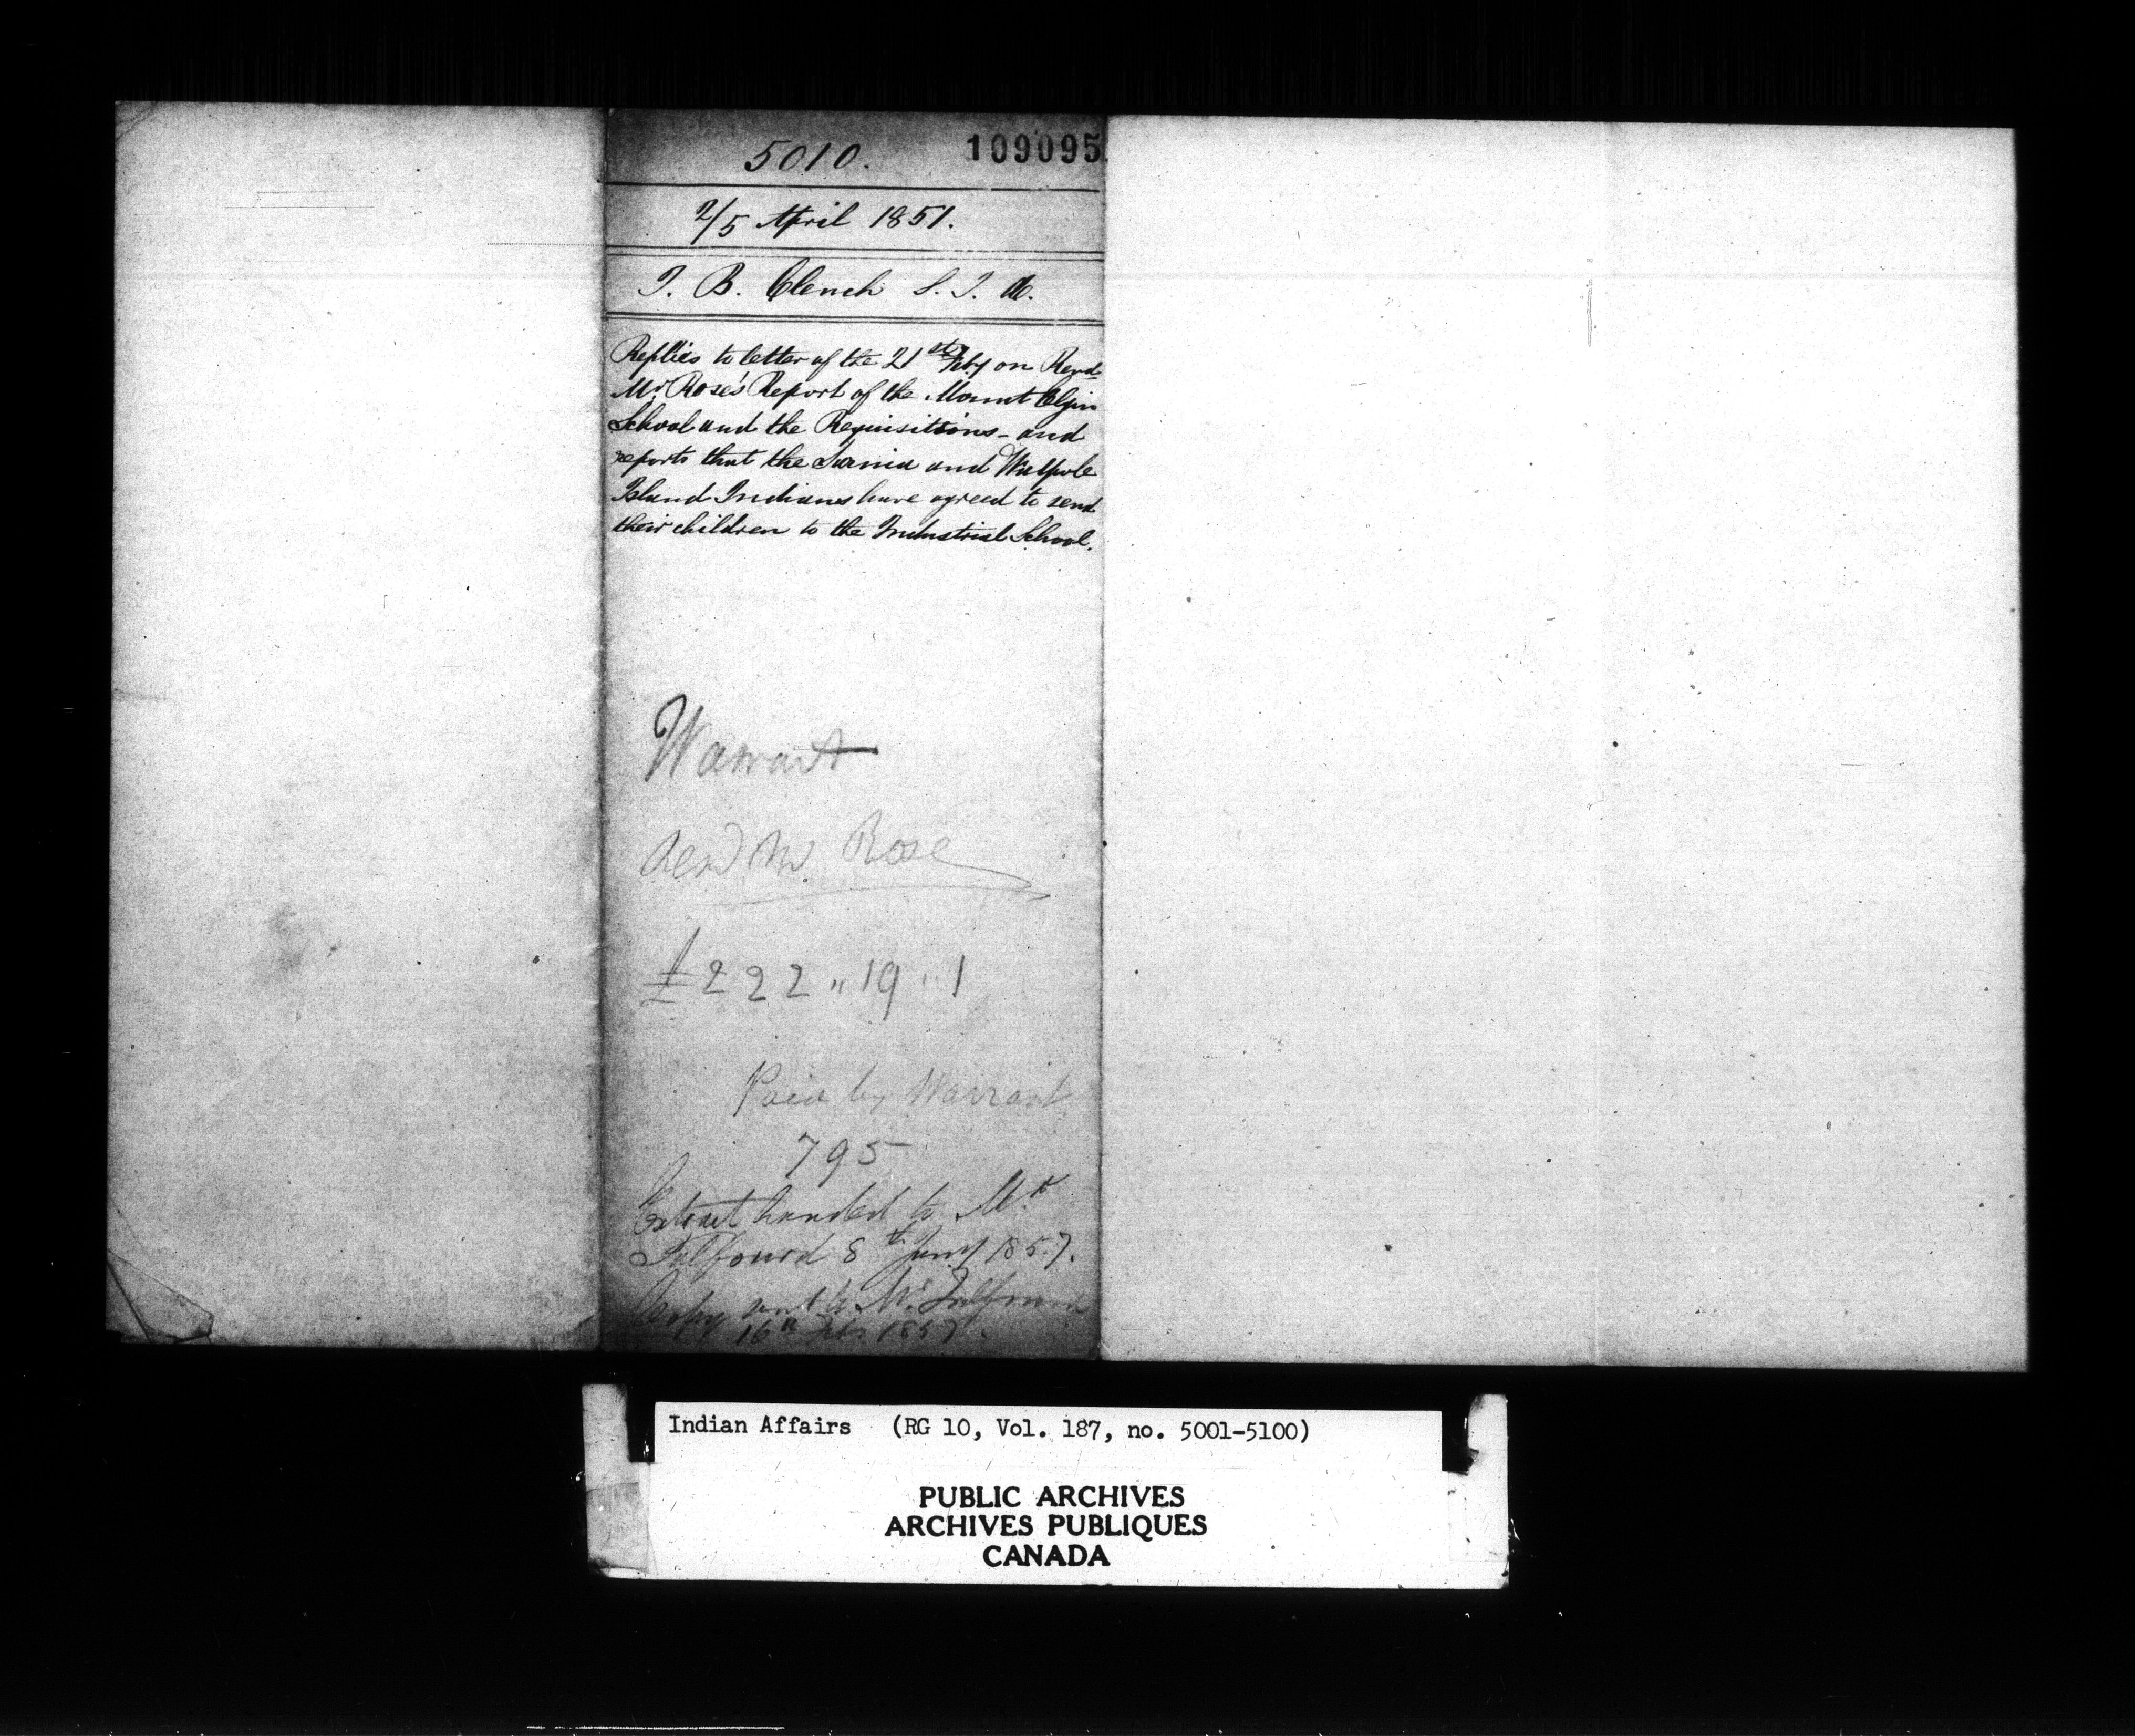 5010. 109095
2/5 April 1851.
J. B. Clench S. I. A.
Replies to letter of the 21st Feby on Revd
Mr Rose's Report of the Mount Elgin
School and the Requisitions - and
reports that the Sarnia and Walpole
Island Indians have agreed to send
their children to the Industrial School.
Warrant
Revd Mr. Rose
£222 " 19 " 1
Paid by Warrant
795
Extract handed to Mr
Talfourd 8th Jany 1857.
Copy sent to Mr Talfourd
16th Feb 1857.
Indian Affairs (RG 10, Vol. 187, no. 5001-5100)
PUBLIC ARCHIVES
ARCHIVES PUBLIQUES
CANADA